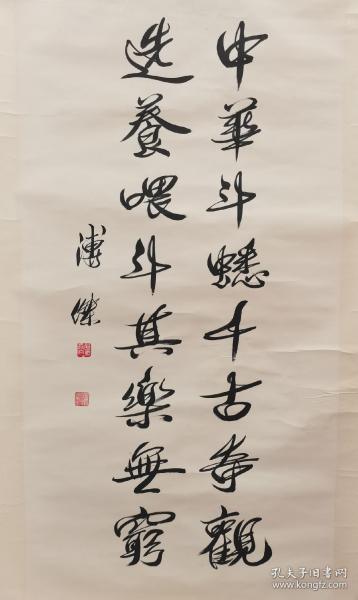 中華斗蟋千古奇觀
选養喂斗其樂無窮
溥傑
孔夫子旧書网
www.kongfz.com